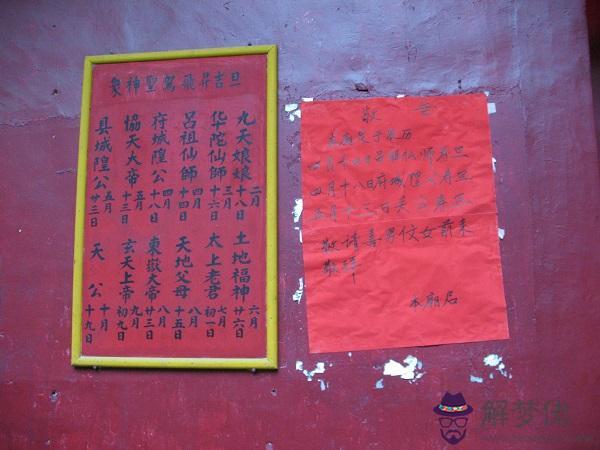 眾神聖駕飛昇吉旦
九天娘娘 二月十八日
华陀仙師 三月十六日
呂祖仙師 四月十四日
府城隍公 四月十八日
協天大帝 五月十三日
县城隍公 五月廿三日
土地福神 六月廿六日
太上老君 七月初一日
天地父母 八月十五日
東嶽大帝 八月廿三日
玄天上帝 九月初九日
天公 十月十九日
敬
四月十八日府城隍公寿旦
五月十三日
敬请善男信女前来
敬拜
本廟启
解梦佬